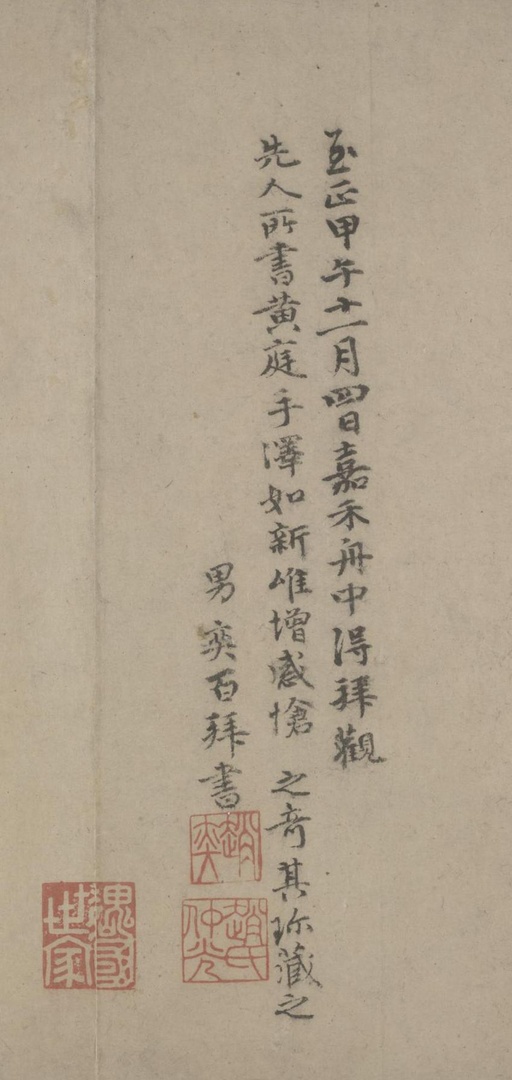 至正甲午十一月四日嘉禾舟中得拜觀
先人所書黄庭手澤如新唯增感愴 之奇其珍藏之
男奕百拜書
趙奕
趙氏仲光
魏國世家